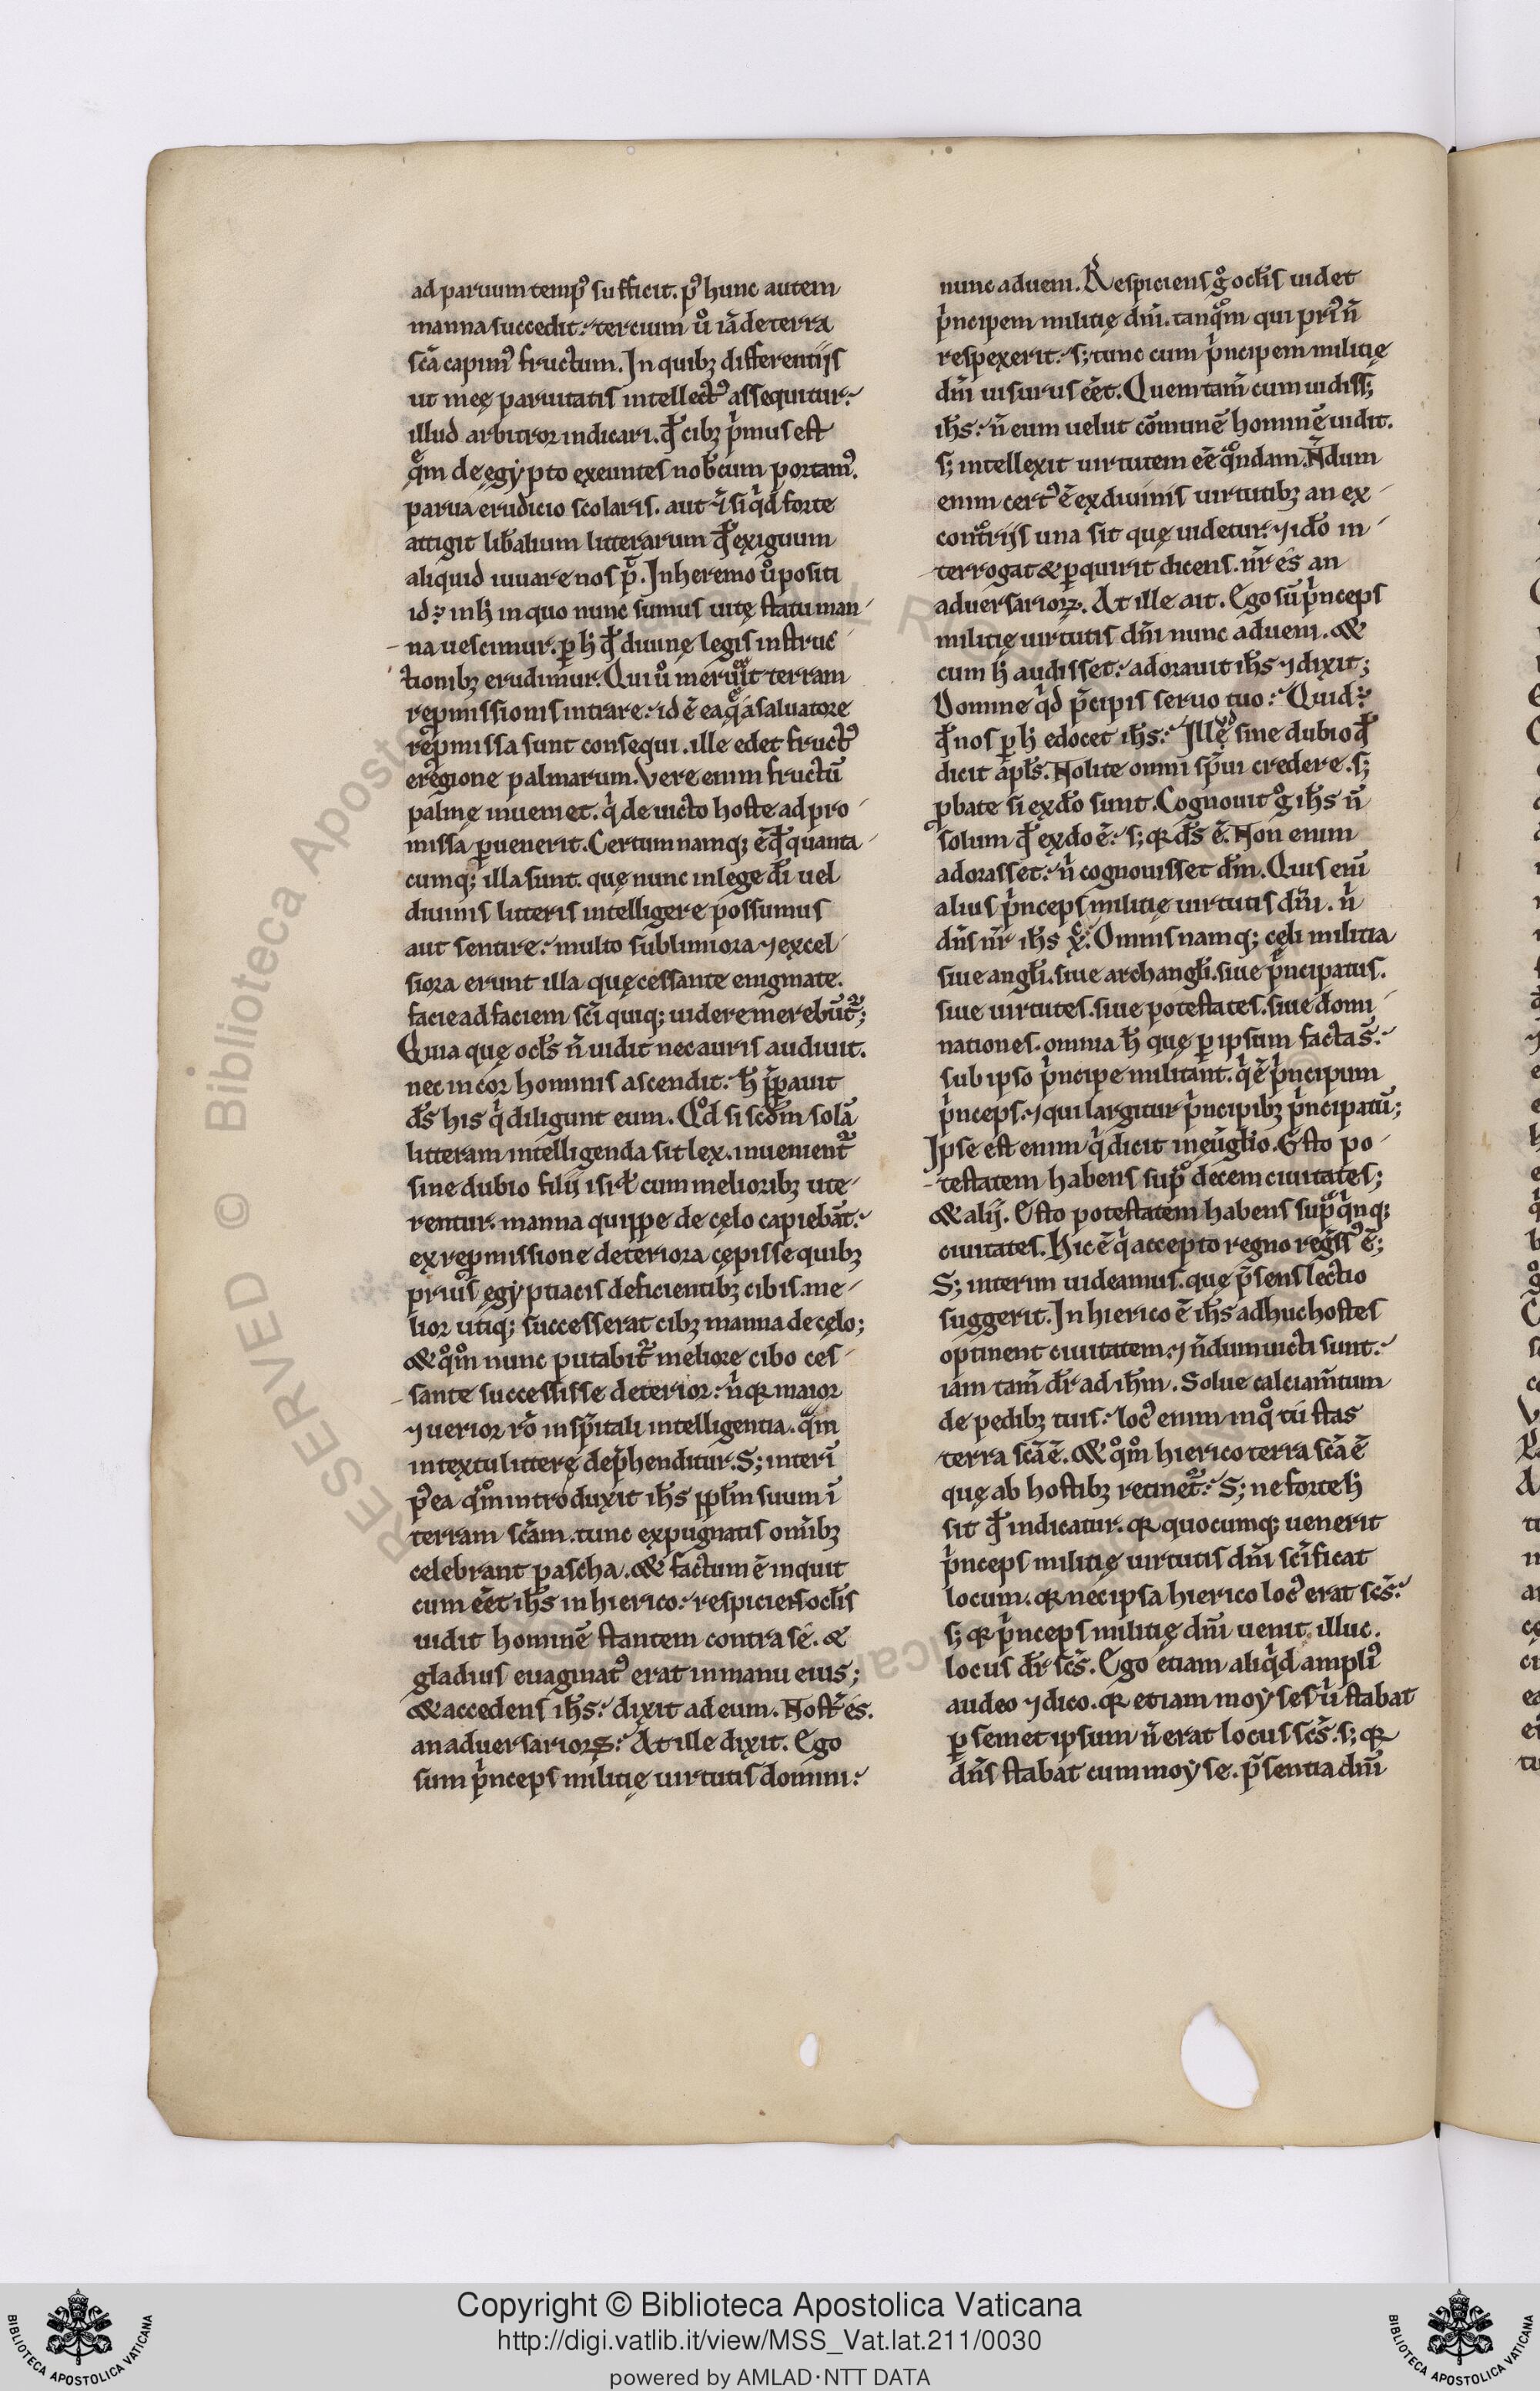 ad paruum temp᾽ sufficit. p᾽ hunc autem
manna succedit. tercium ů iā de terra
scā capim᾽ fructum. In quibꝫ differentijs
ut meę paruitatis intellect᾽ assequitur.
illud arbitror indicari. qđ cib᾽ pⁱmus est
quē de egypto exeuntes nobcum portam᾽.
parua erudicio scolaris. aut &̄ si qⁱd forte
attigit libalium litterarum qđ exiguum
aliquid iuuare nos p̄t. In heremo ů positi
id ÷ in h̓ in quo nunc sumus uitę statu man-
na uescimur. ꝑ h̓ qđ diuinę legis instruc-
tionibꝫ erudimur. Qui ů meruit terram
repmissionis intrare. id ē ea quę a saluatore
repmissa sunt consequi. ille edet fruct᾽
e regione palmarum. Vere enim fructū
palmę inueniet. qⁱ deuicto hoste ad pro-
missa ꝑuenerit. Certum namq; ē qđ quanta-
cumq; illa sunt. quę nunc in lege dī uel
diuinis litteris intelligere possumus
aut sentire. multo sublimiora ⁊ excel-
siora erunt illa quę cessante enigmate.
facie ad faciem sci quiq; uidere merebūt᷑;
Quia quę ocls ñ uidit nec auris audiuit.
nec in cor hominis ascendit. h̓ p̄parauit
ds his qⁱ diligunt eum. Qđ si scdm solā
litteram intelligenda sit lex. inuenient᷑
sine dubio filij isrł cum melioribꝫ ute-
rentur. manna quippe de cęlo capiebāt.
ex repmissione deteriora cępisse quibꝫ
prius ęgyptiacis deficientibꝫ cibis. me-
lior utiq; successerat cibꝫ manna de cęlo;
& qᵒmᵒ nunc putabit᷑ meliore cibo ces-
sante successisse deterior. nⁱ qꝛ maior
⁊ uerior rō in spitali intelligentia. quā
in textu litterę dep̄henditur. S; interī
p᾽ea qᵒm introduxit ihs pplm suum ī
terram scam. tunc expugnatis omibꝫ
celebrant pascha. & factum ē inquit
cum eēt ihs in hierico. respiciens oclis
uidit hominē stantem contra se. &
gladius euaginat᾽ erat in manu eius;
& accedens ihs. dixit ad eum. Nostr̄ es.
an aduersarioꝝ. At ille dixit. Ego
sum pⁱnceps militię uirtutis domini.
nunc adueni. Respiciens gᵒ oclis uidet
pⁱncipem militię dni. tanquam qui pri᾽ ñ
respexerit. s; tunc cum pⁱncipem militię
dni uisurus eēt. Quem tam̄ cum uidiss;
ihs. ñ eum uelut cōmunē hominē uidit.
s; intellexit uirtutem eē quondam. Ñdum
enim cert᾽ ē ex diuinis uirtutibꝫ an ex
contrarijs una sit quę uidetur. ⁊ ido in-
terrogat & ꝑquirit dicens. nr̄ es an
aduersarioꝝ. At ille ait. Ego sū pⁱnceps
militię uirtutis dni nunc adueni. &
cum h̓ audisset. adorauit ihs ⁊ dixit;
Domine qⁱd p̄cipis seruo tuo. Quid ÷
qđ nos ꝑ h̓ edocet ihs. Illud sine dubio qđ
dicit apls. Nolite omni spui credere. s;
ꝓbate si ex do sunt. Cognouit gᵒ ihs ñ
solum qđ ex do ē. s; qꝛ ds ē. Non enim
adorasset. nⁱ cognouisset dm. Quis enī
alius pⁱnceps militię uirtutis dni. nⁱ
dns nr ihs x᾽. Omnis namq; cęli militia
siue angli. siue archangli. siue pⁱncipatus.
siue uirtutes. siue potestates. siue domi-
nationes. omnia h̓ quę ꝑ ipsum facta s̄.
sub ipso pⁱncipe militant. qⁱ ē pⁱncipum
pⁱnceps. ⁊ qui largitur pⁱncipibꝫ pⁱncipatū;
Ipse est enim qⁱ dicit in euglio. Esto po-
testatem habens supᵃ decem ciuitates;
& alij. Esto potestatem habens supᵃ qⁱnq;
ciuitates. Hic ē qⁱ accepto regno regss᾽ ē;
S; interim uideamus. quę p̄sens lectio
suggerit. In hierico ē ihs adhuc hostes
optinent ciuitatem. ⁊ ñdum uicti sunt.
iam tam̄ dr ad ihm. Solue calciam̄tum
de pedibꝫ tuis. loc᾽ enim in qᵒ tu stas
terra scā ē. & qᵒmᵒ hierico terra scā ē
quę ab hostibꝫ retinet᷑. S; ne forte h̓
sit qđ indicatur. qꝛ quocumq; uenerit
pⁱnceps militię uirtutis dni scificat
locum. qꝛ nec ipsa hierico loc᾽ erat scs.
s; qꝛ pⁱnceps militię dni uenit illuc.
locus dr scs. Ego etiam aliqⁱd ampli᾽
audeo ⁊ dico. qꝛ etiam moyses uⁱ stabat
ꝑ semet ipsum ñ erat locus scs. s; qꝛ
dns stabat cum moyse. p̄sentia dni
Copyright © Biblioteca Apostolica Vaticana
http://digi.vatlib.it/view/MSS_Vat.lat.211/0030
powered by AMLAD·NTT DATA
BIBLIOTECA APOSTOLICA VATICANA
BIBLIOTECA APOSTOLICA VATICANA